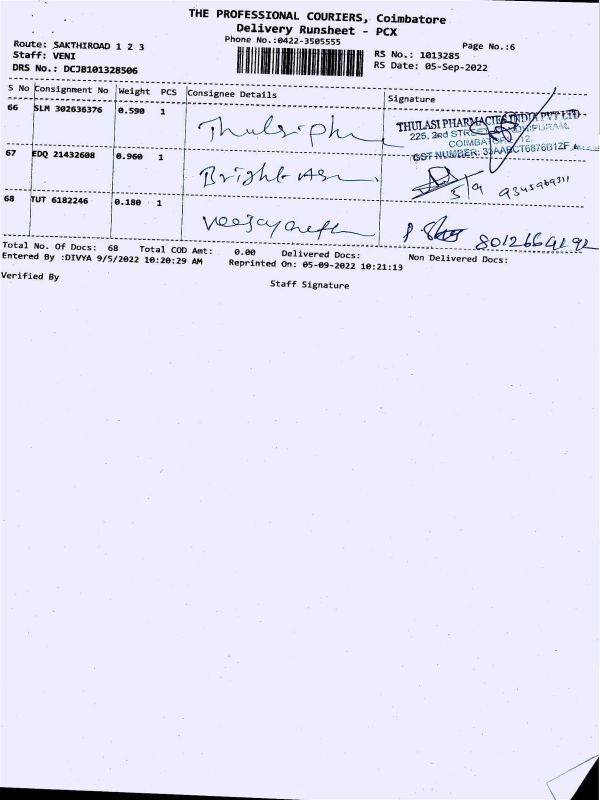 THE PROFESSIONAL COURIERS, Coimbatore
Delivery Runsheet - PCX
Phone No.:0422-3505555
Page No.:6
Route: SAKTHIROAD 1 2 3
Staff: VENI
DRS No.: DCJB101328506
RS No.: 1013285
RS Date: 05-Sep-2022
S No Consignment No Weight PCS Consignee Details Signature
66 SLM 302636376 0.590 1 Thulsi
THULASI PHARMACIES INDIA PVT LTD
225, 2nd STREET
COIMBATORE
GST NUMBER: 33AABCT6876B1ZF
67 EDQ 21432608 0.960 1 Bright
5/9 9345969311
68 TUT 6182246 0.180 1
8012664192
Total No. Of Docs: 68 Total COD Amt: 0.00 Delivered Docs: Non Delivered Docs:
Entered By :DIVYA 9/5/2022 10:20:29 AM Reprinted On: 05-09-2022 10:21:13
Verified By
Staff Signature